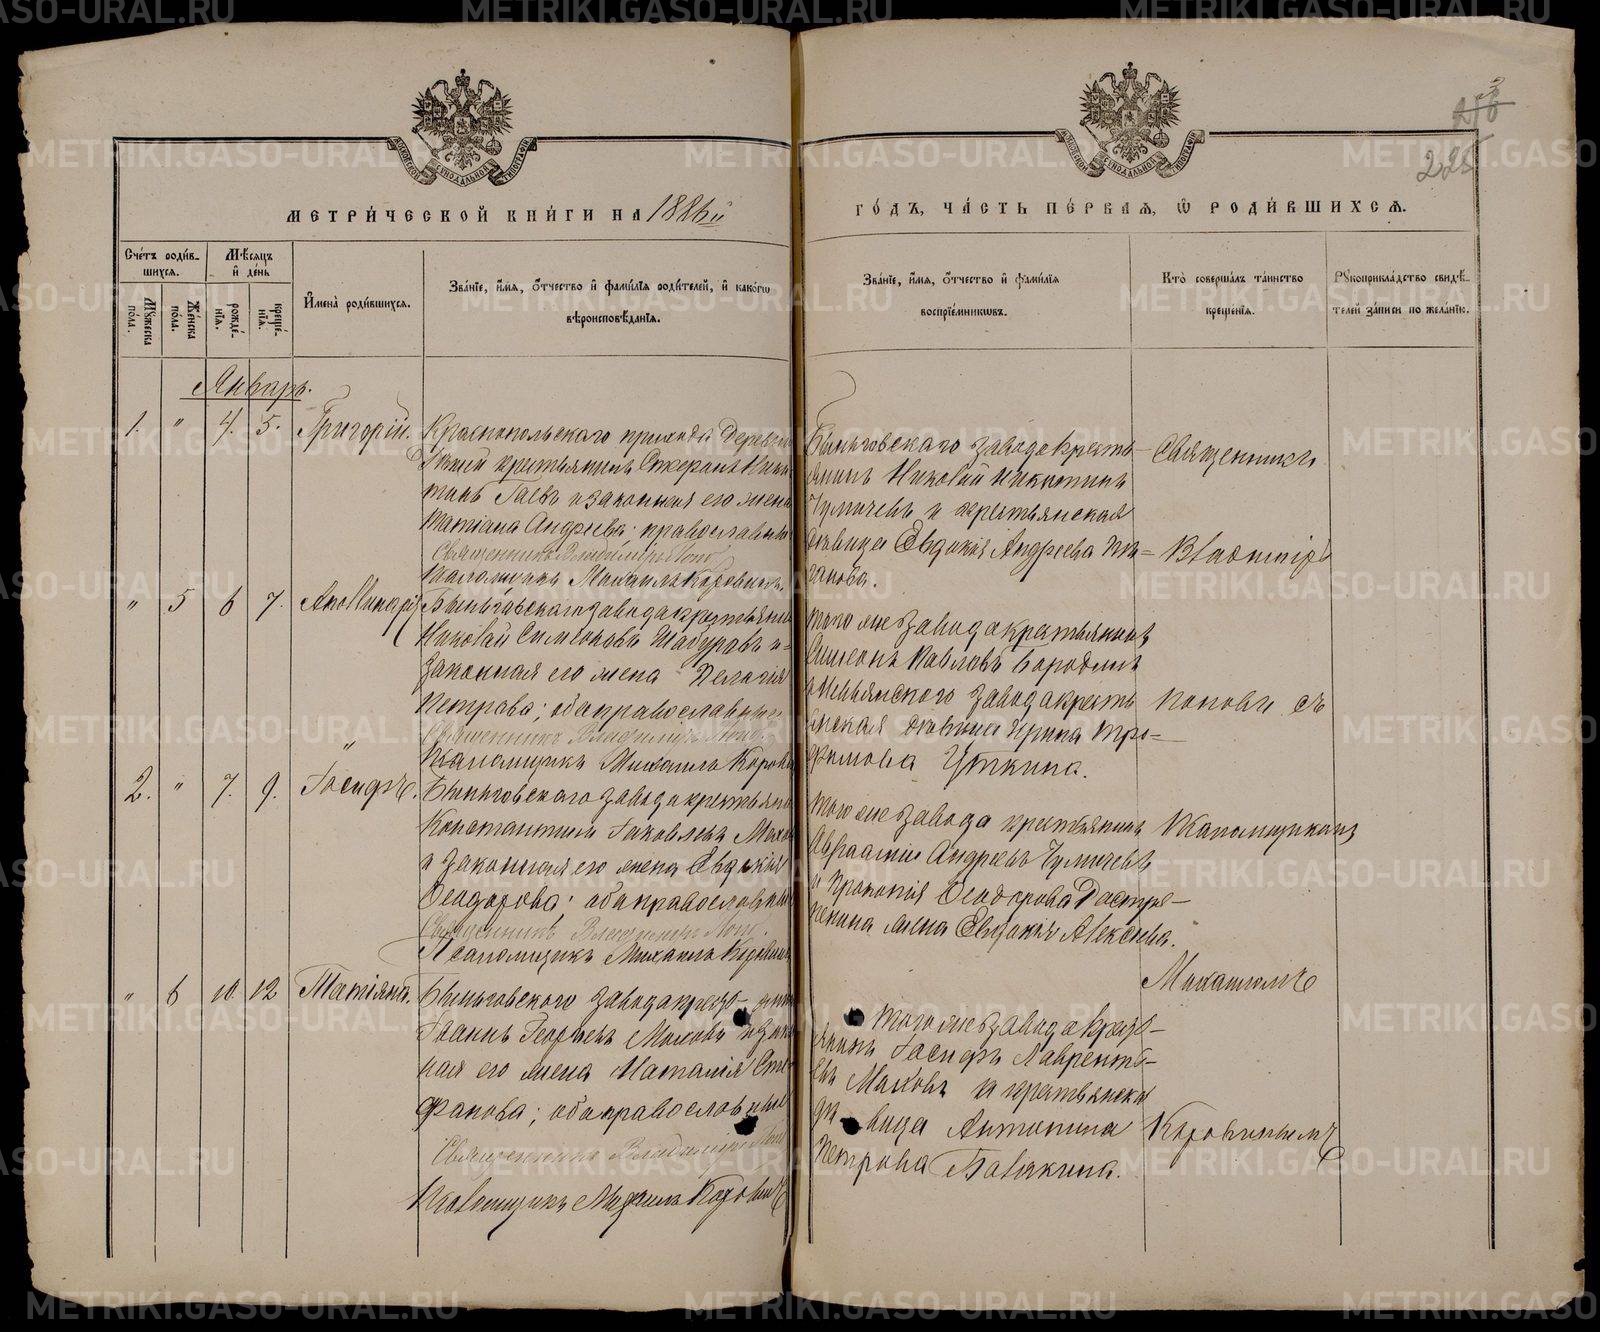 МЕТРИ́ЧЕСКОЙ КНИ́ГИ НА 1886й
ГО́ДЪ, ЧА́СТЬ ПЕ́РВАЯ, Ѿ РОДИ́ВШИХСѦ.
218
225
Сче́тъ роди́в-
шихся.
Мѣ́сяцъ
и́ де́нь
Мꙋ́жеска
по́ла.
Же́нска
по́ла.
рожде́-
нїѧ.
креще́-
нїѧ.
И҆мена̀ роди́вшихся.
Зва́нїе, и҆́мя, ѻ҆́тчество и҆ фамѝлїѧ роди́телей, и҆ како́гѡ
вѣроисповѣ́данїя.
Зва́нїе, и҆́мя, ѻ҆́тчество и҆ фамѝлїѧ
воспрїе́мникѡвъ.
Кто̀ соверша́лъ та́инство
креще́нїя.
Рꙋкоприкла́дство свидѣ́-
телей за́писи по жела́нїю.
Январь.
1. " 4. 5. Григорій.
Краснопольскаго прихода деревни
крестьянинъ Стефанъ Ники-
тинъ Гаевъ и законная его жена
Татіана Андреева; православные
Священникъ Владиміръ Попов
Псаломщикъ Михаилъ Коровинъ
Быньговскаго завода кресть-
янинъ Николай Никитинъ
Чумичевъ и крестьянская
дѣвица Евдокія Андреева
Священникъ
Владиміръ
" 5 6 7. Аполлинарія
Быньговскаго завода крестьянинъ
Николай Симеоновъ Шабуровъ и
законная его жена Пелагія
Петрова; оба православные
Священникъ Владиміръ Попов
Псаломщикъ Михаилъ Коровинъ
того же завода крестьянинъ
Симеонъ Павловъ Бородинъ
и Невьянскаго завода кресть-
янская дѣвица Ирина Тро-
фимова Уткина.
Поповъ съ
2. " 7. 9. Іосифъ.
Быньговскаго завода крестьянинъ
Константинъ Іаковлевъ Махов
и законная его жена Евдокія
Ѳеодорова; оба православные
Священникъ Владиміръ Попов
Псаломщикъ Михаилъ Коровинъ
того же завода крестьянинъ
Авраамій Андреевъ Чумичевъ
и Прокопія Ѳеодорова Растре-
пенина жена Евдокія Алексѣева.
Псаломщикомъ
Михаиломъ
" 6 10. 12 Татіяна.
Быньговскаго завода кресть-янинъ
Іоаннъ Георгіевъ Маховъ и закон-
ная его жена Наталія Сте-
фанова; оба православные
Священникъ Владиміръ Попов
Псаломщикъ Михаилъ Коровинъ
того же завода кресть-
янинъ Іосифъ Лаврентъ-
евъ Маховъ и крестьянская
дѣ-вица Антонина
Петрова Бавыкина.
Коровинымъ
METRIKI.GASO-URAL.RU